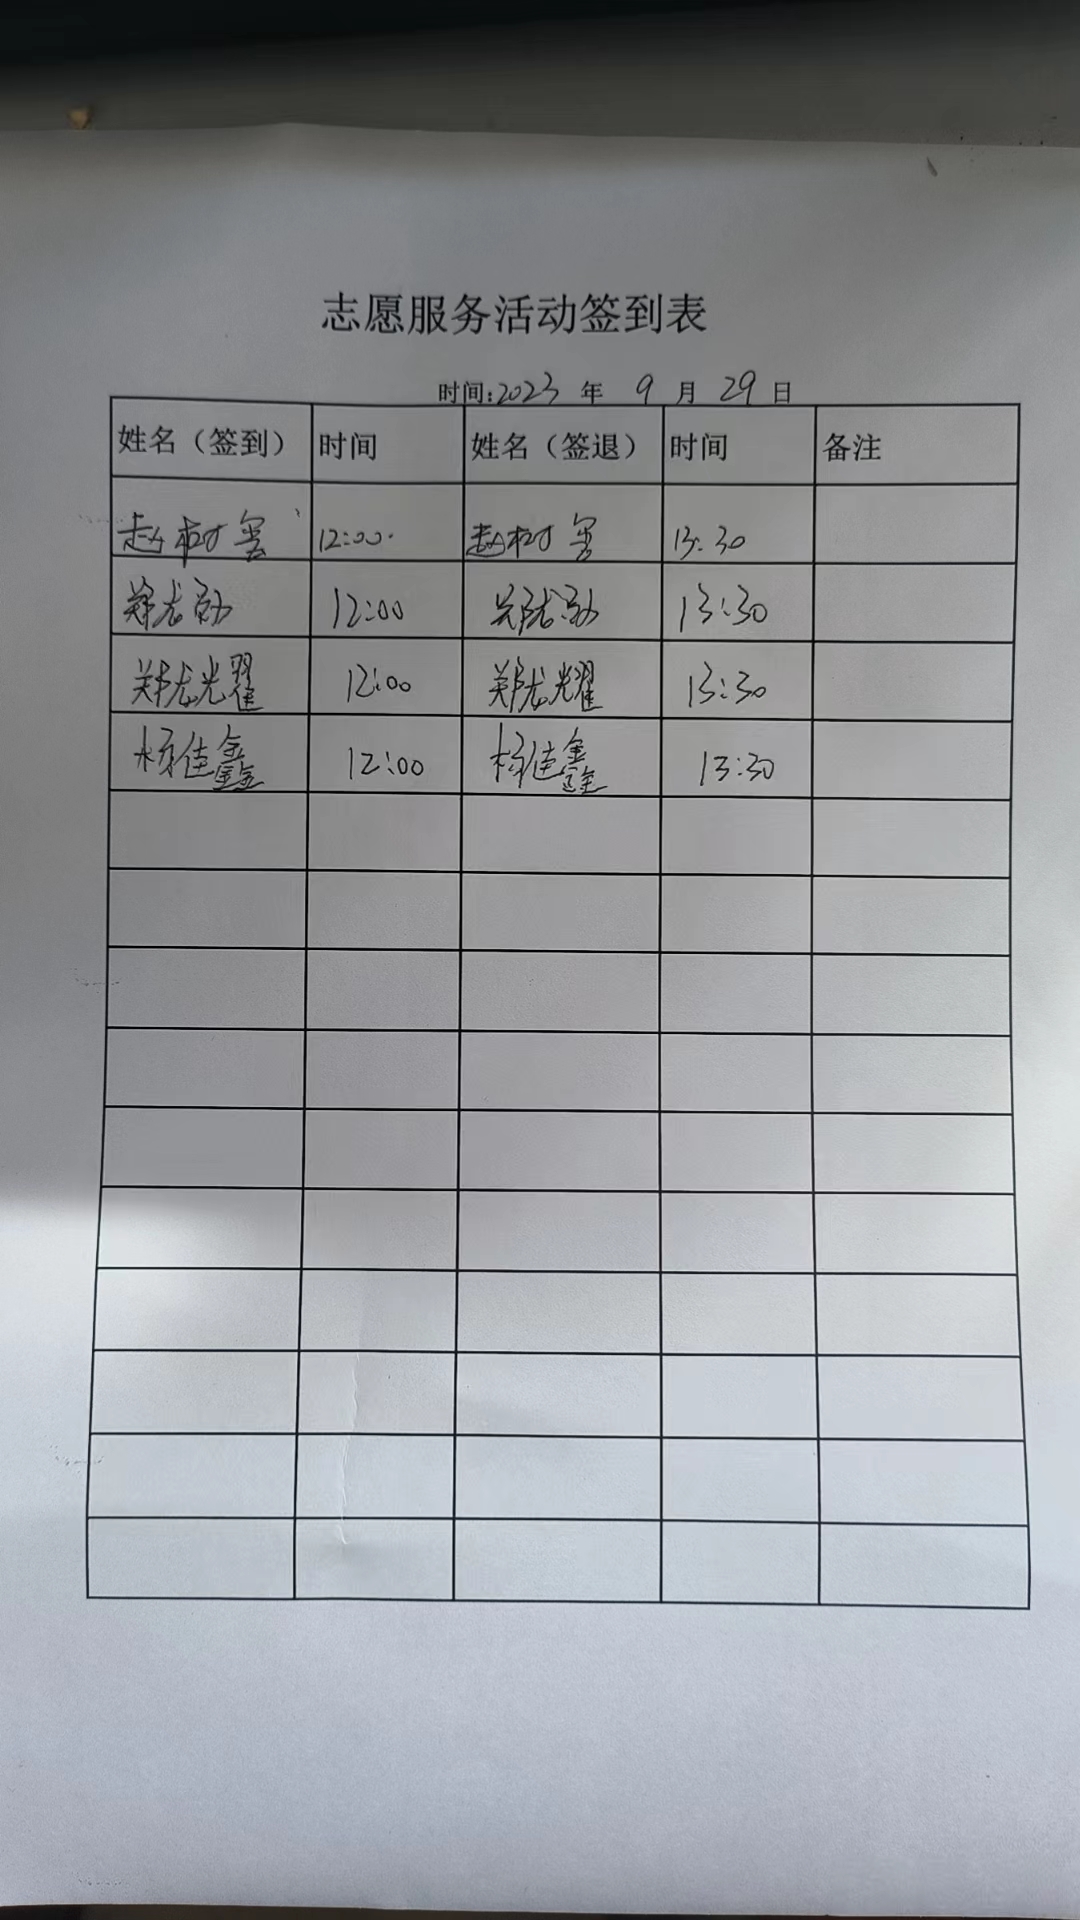 志愿服务活动签到表
时间:2023 年 9 月 29 日
姓名（签到） 时间 姓名（签退） 时间 备注
赵树 12:00 赵树 13:30
郑龙 12:00 郑龙 13:30
郑龙光耀 12:00 郑龙耀 13:30
杨佳鑫 12:00 杨佳鑫 13:30